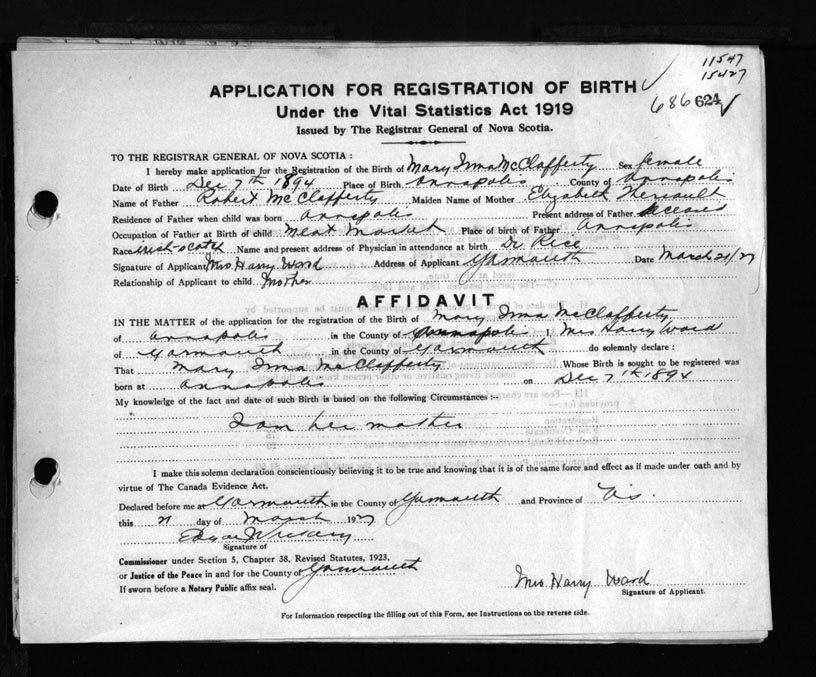 11547
15427
APPLICATION FOR REGISTRATION OF BIRTH
686 624
Under the Vital Statistics Act 1919
Issued by The Registrar General of Nova Scotia.
TO THE REGISTRAR GENERAL OF NOVA SCOTIA :
I hereby make application for the Registration of the Birth of Mary Irma McClafferty Sex female
Date of Birth Dec 7th 1894 Place of Birth Annapolis County of Annapolis
Name of Father Robert McClafferty Maiden Name of Mother Elizabeth Theriault
Residence of Father when child was born Annapolis Present address of Father deceased
Occupation of Father at Birth of child Meat Market Place of birth of Father Annapolis
Race irish-scotch Name and present address of Physician in attendance at birth Dr. Rice
Signature of Applicant Mrs Harry Ward Address of Applicant Yarmouth Date March 21/27
Relationship of Applicant to child Mother
AFFIDAVIT
IN THE MATTER of the application for the registration of the Birth of Mary Irma McClafferty
of Annapolis in the County of Annapolis I, Mrs Harry Ward
of Yarmouth in the County of Yarmouth do solemnly declare :
That Mary Irma McClafferty Whose Birth is sought to be registered was
born at Annapolis on Dec 7th 1894
My knowledge of the fact and date of such Birth is based on the following Circumstances :-
I am her mother
I make this solemn declaration conscientiously believing it to be true and knowing that it is of the same force and effect as if made under oath and by
virtue of The Canada Evidence Act.
Declared before me at Yarmouth in the County of Yarmouth and Province of N.S.
this 21 day of March 1927
Signature of
Commissioner under Section 5, Chapter 38, Revised Statutes, 1923,
or Justice of the Peace in and for the County of Yarmouth
If sworn before a Notary Public affix seal.
Mrs Harry Ward
Signature of Applicant.
For Information respecting the filling out of this Form, see Instructions on the reverse side.